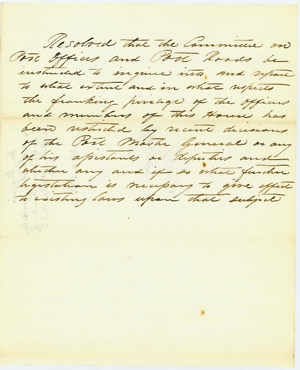 Resolved that the Committee on
Post Offices and Post Roads be
instructed to inquire into and report
to what extent and in what respects
the franking privilege of the officers
and members of this House has
been restricted by recent decisions
of the Post Master General or any
of his assistants or Deputies and
whether any and if so what further
legislation is necessary to give effect
to existing laws upon that subject